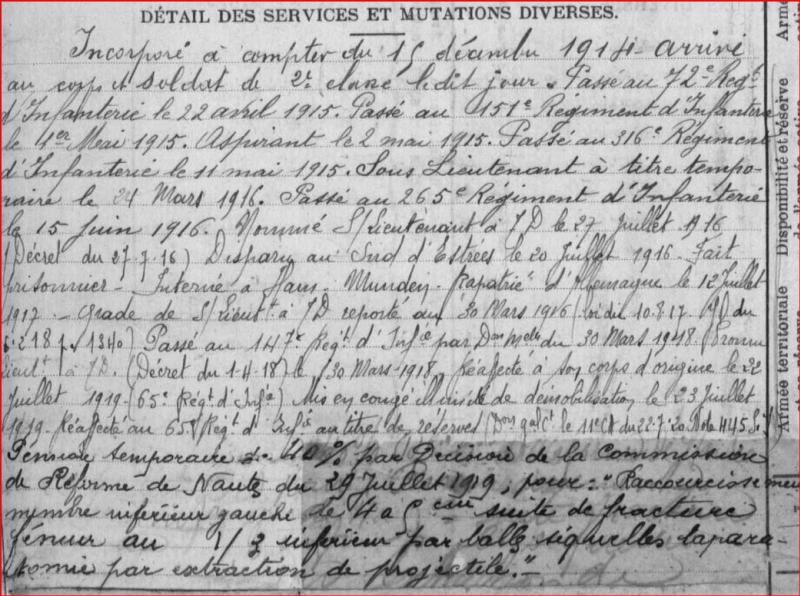 DÉTAIL DES SERVICES ET MUTATIONS DIVERSES.
Incorporé à compter du 15 décembre 1914 arrivé
au corps et soldat de 2e classe ledit jour. Passé au 72e Regt
d'Infanterie le 22 avril 1915. Passé au 151e Regiment d'Infanterie
le 1er Mai 1915. Aspirant le 2 mai 1915. Passé au 316e Régiment
d'Infanterie le 11 mai 1915. Sous Lieutenant à titre tempo-
raire le 24 Mars 1916. Passé au 265e Régiment d'Infanterie
le 15 Juin 1916. Nommé S/Lieutenant à TD le 27 Juillet 1916
(Décret du 27-7-16) Disparu au Sud d'Estrées le 20 Juillet 1916. Fait
prisonnier - Interné à Munden. Rapatrié d'Allemagne le 12 Juillet
1917 - Grade de S/Lieutt à TD reporté au 30 Mars 1916 (loi du 10.8.17. du
218 p. 1340) Passé au 147e Régt d'Infie par Don du 30 Mars 1918. Promu
lieutt à TD. (Décret du 1-4-18) le 30 Mars 1918. Réaffecté à son corps d'origine le 22
Juillet 1919 - 65e Régt d'Infie) Mis en congé illimité de démobilisation le 23 Juillet
1919 - Réaffecté au 65e Régt d'Infie au titre de réserves (Don le 11e CA du 22.7.20 Note 445
Pension temporaire de 40% par Décision de la Commission
de Réforme de Nantes du 29 Juillet 1919, pour: "Raccourcissemeu
membre inférieur gauche de 4 a 5 cm suite de fracture
fémur au 1/3 inférieur par balle séquelles lapara
tomie par extraction de projectile."
Armée territoriale
Disponibilité et réserve